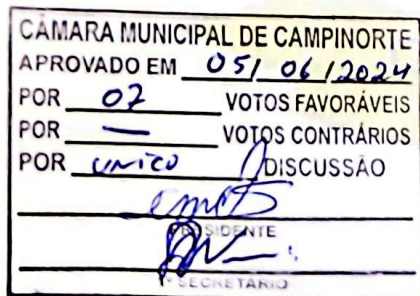 CÂMARA MUNICIPAL DE CAMPINORTE
APROVADO EM 05/06/2024
POR 07 VOTOS FAVORÁVEIS
POR — VOTOS CONTRÁRIOS
POR unico DISCUSSÃO
PRESIDENTE
1º SECRETÁRIO